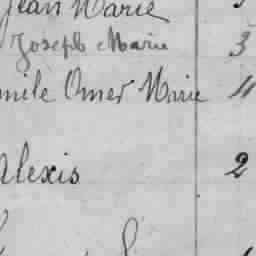 Jean Marie
Joseph Marie 3
mile Omer Marie 11
Alexis 2